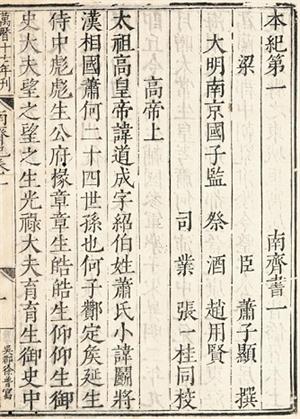 本紀第一 南齊書一
梁 臣 蕭子顯 撰
大明南京國子監 祭 酒 趙用賢
司 業 張一桂同校
高帝上
太祖高皇帝諱道成字紹伯姓蕭氏小諱鬬將
漢相國蕭何二十四世孫也何子酇定矦延生
侍中彪彪生公府掾章章生皓皓生仰仰生御
史大夫望之望之生光祿大夫育育生御史中
萬曆十七年刊
南齊書卷一
一
吳郡徐普寫